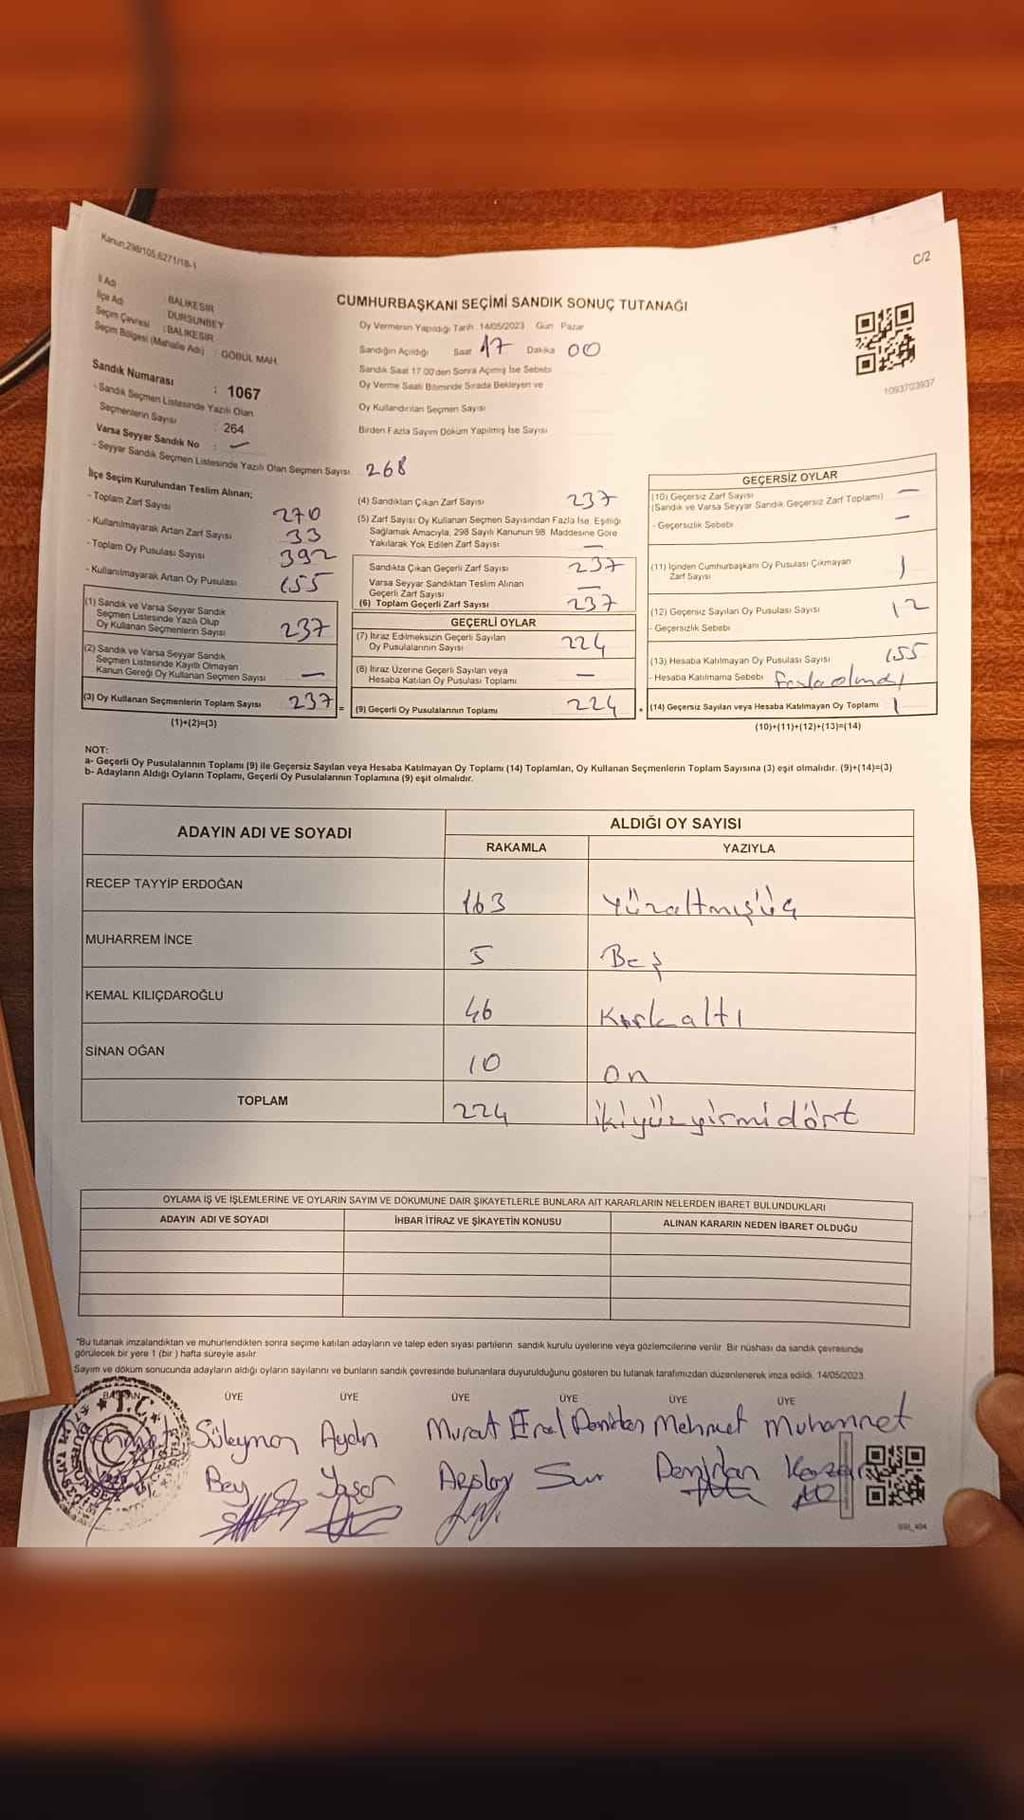 Kanun;298/105,6271/18-1
C/2
İl Adı : BALIKESİR
İlçe Adı : DURSUNBEY
Seçim Çevresi : BALIKESİR
Seçim Bölgesi (Mahalle Adı) : GÖBÜL MAH.
CUMHURBAŞKANI SEÇİMİ SANDIK SONUÇ TUTANAĞI
Oy Vermenin Yapıldığı Tarih : 14/05/2023 Gün : Pazar
Sandığın Açıldığı Saat 17 Dakika 00
Sandık Saat 17.00'den Sonra Açılmış İse Sebebi
Oy Verme Saati Bitiminde Sırada Bekleyen ve
Oy Kullandırılan Seçmen Sayısı
Birden Fazla Sayım Döküm Yapılmış İse Sayısı
1093703937
Sandık Numarası : 1067
- Sandık Seçmen Listesinde Yazılı Olan
Seçmenlerin Sayısı : 264
Varsa Seyyar Sandık No : —
- Seyyar Sandık Seçmen Listesinde Yazılı Olan Seçmen Sayısı 268
İlçe Seçim Kurulundan Teslim Alınan;
- Toplam Zarf Sayısı 270
- Kullanılmayarak Artan Zarf Sayısı 33
- Toplam Oy Pusulası Sayısı 392
- Kullanılmayarak Artan Oy Pusulası 155
(1) Sandık ve Varsa Seyyar Sandık
Seçmen Listesinde Yazılı Olup
Oy Kullanan Seçmenlerin Sayısı 237
(2) Sandık ve Varsa Seyyar Sandık
Seçmen Listesinde Kayıtlı Olmayan
Kanun Gereği Oy Kullanan Seçmen Sayısı —
(3) Oy Kullanan Seçmenlerin Toplam Sayısı 237
(1)+(2)=(3)
(4) Sandıktan Çıkan Zarf Sayısı 237
(5) Zarf Sayısı Oy Kullanan Seçmen Sayısından Fazla İse, Eşitliği
Sağlamak Amacıyla, 298 Sayılı Kanunun 98. Maddesine Göre
Yakılarak Yok Edilen Zarf Sayısı —
Sandıkta Çıkan Geçerli Zarf Sayısı 237
Varsa Seyyar Sandıktan Teslim Alınan
Geçerli Zarf Sayısı —
(6) Toplam Geçerli Zarf Sayısı 237
GEÇERLİ OYLAR
(7) İtiraz Edilmeksizin Geçerli Sayılan
Oy Pusulalarının Sayısı 224
(8) İtiraz Üzerine Geçerli Sayılan veya
Hesaba Katılan Oy Pusulası Toplamı —
= (9) Geçerli Oy Pusulalarının Toplamı 224
GEÇERSİZ OYLAR
(10) Geçersiz Zarf Sayısı —
(Sandık ve Varsa Seyyar Sandık Geçersiz Zarf Toplamı)
- Geçersizlik Sebebi —
(11) İçinden Cumhurbaşkanı Oy Pusulası Çıkmayan
Zarf Sayısı 1
(12) Geçersiz Sayılan Oy Pusulası Sayısı 12
- Geçersizlik Sebebi
(13) Hesaba Katılmayan Oy Pusulası Sayısı 155
- Hesaba Katılmama Sebebi fazla olması
+ (14) Geçersiz Sayılan veya Hesaba Katılmayan Oy Toplamı 1
(10)+(11)+(12)+(13)=(14)
NOT:
a- Geçerli Oy Pusulalarının Toplamı (9) ile Geçersiz Sayılan veya Hesaba Katılmayan Oy Toplamı (14) Toplamları, Oy Kullanan Seçmenlerin Toplam Sayısına (3) eşit olmalıdır. (9)+(14)=(3)
b- Adayların Aldığı Oyların Toplamı, Geçerli Oy Pusulalarının Toplamına (9) eşit olmalıdır.
ADAYIN ADI VE SOYADI ALDIĞI OY SAYISI
RAKAMLA YAZIYLA
RECEP TAYYİP ERDOĞAN 163 Yüzaltmışüç
MUHARREM İNCE 5 Beş
KEMAL KILIÇDAROĞLU 46 Kırkaltı
SİNAN OĞAN 10 on
TOPLAM 224 ikiyüzyirmidört
OYLAMA İŞ VE İŞLEMLERİNE VE OYLARIN SAYIM VE DÖKÜMÜNE DAİR ŞİKAYETLERLE BUNLARA AİT KARARLARIN NELERDEN İBARET BULUNDUKLARI
ADAYIN ADI VE SOYADI İHBAR İTİRAZ VE ŞİKAYETİN KONUSU ALINAN KARARIN NEDEN İBARET OLDUĞU
*Bu tutanak imzalandıktan ve mühürlendikten sonra seçime katılan adayların ve talep eden siyasi partilerin sandık kurulu üyelerine veya gözlemcilerine verilir. Bir nüshası da sandık çevresinde
görülecek bir yere 1 (bir) hafta süreyle asılır.
Sayım ve döküm sonucunda adayların aldığı oyların sayılarını ve bunların sandık çevresinde bulunanlara duyurulduğunu gösteren bu tutanak tarafımızdan düzenlenerek imza edildi. 14/05/2023
BAŞKAN ÜYE ÜYE ÜYE ÜYE ÜYE ÜYE
T.C.
Süleyman Aydın Murat Erol Mehmet Muhammet
Bey Yaşar Demirdan